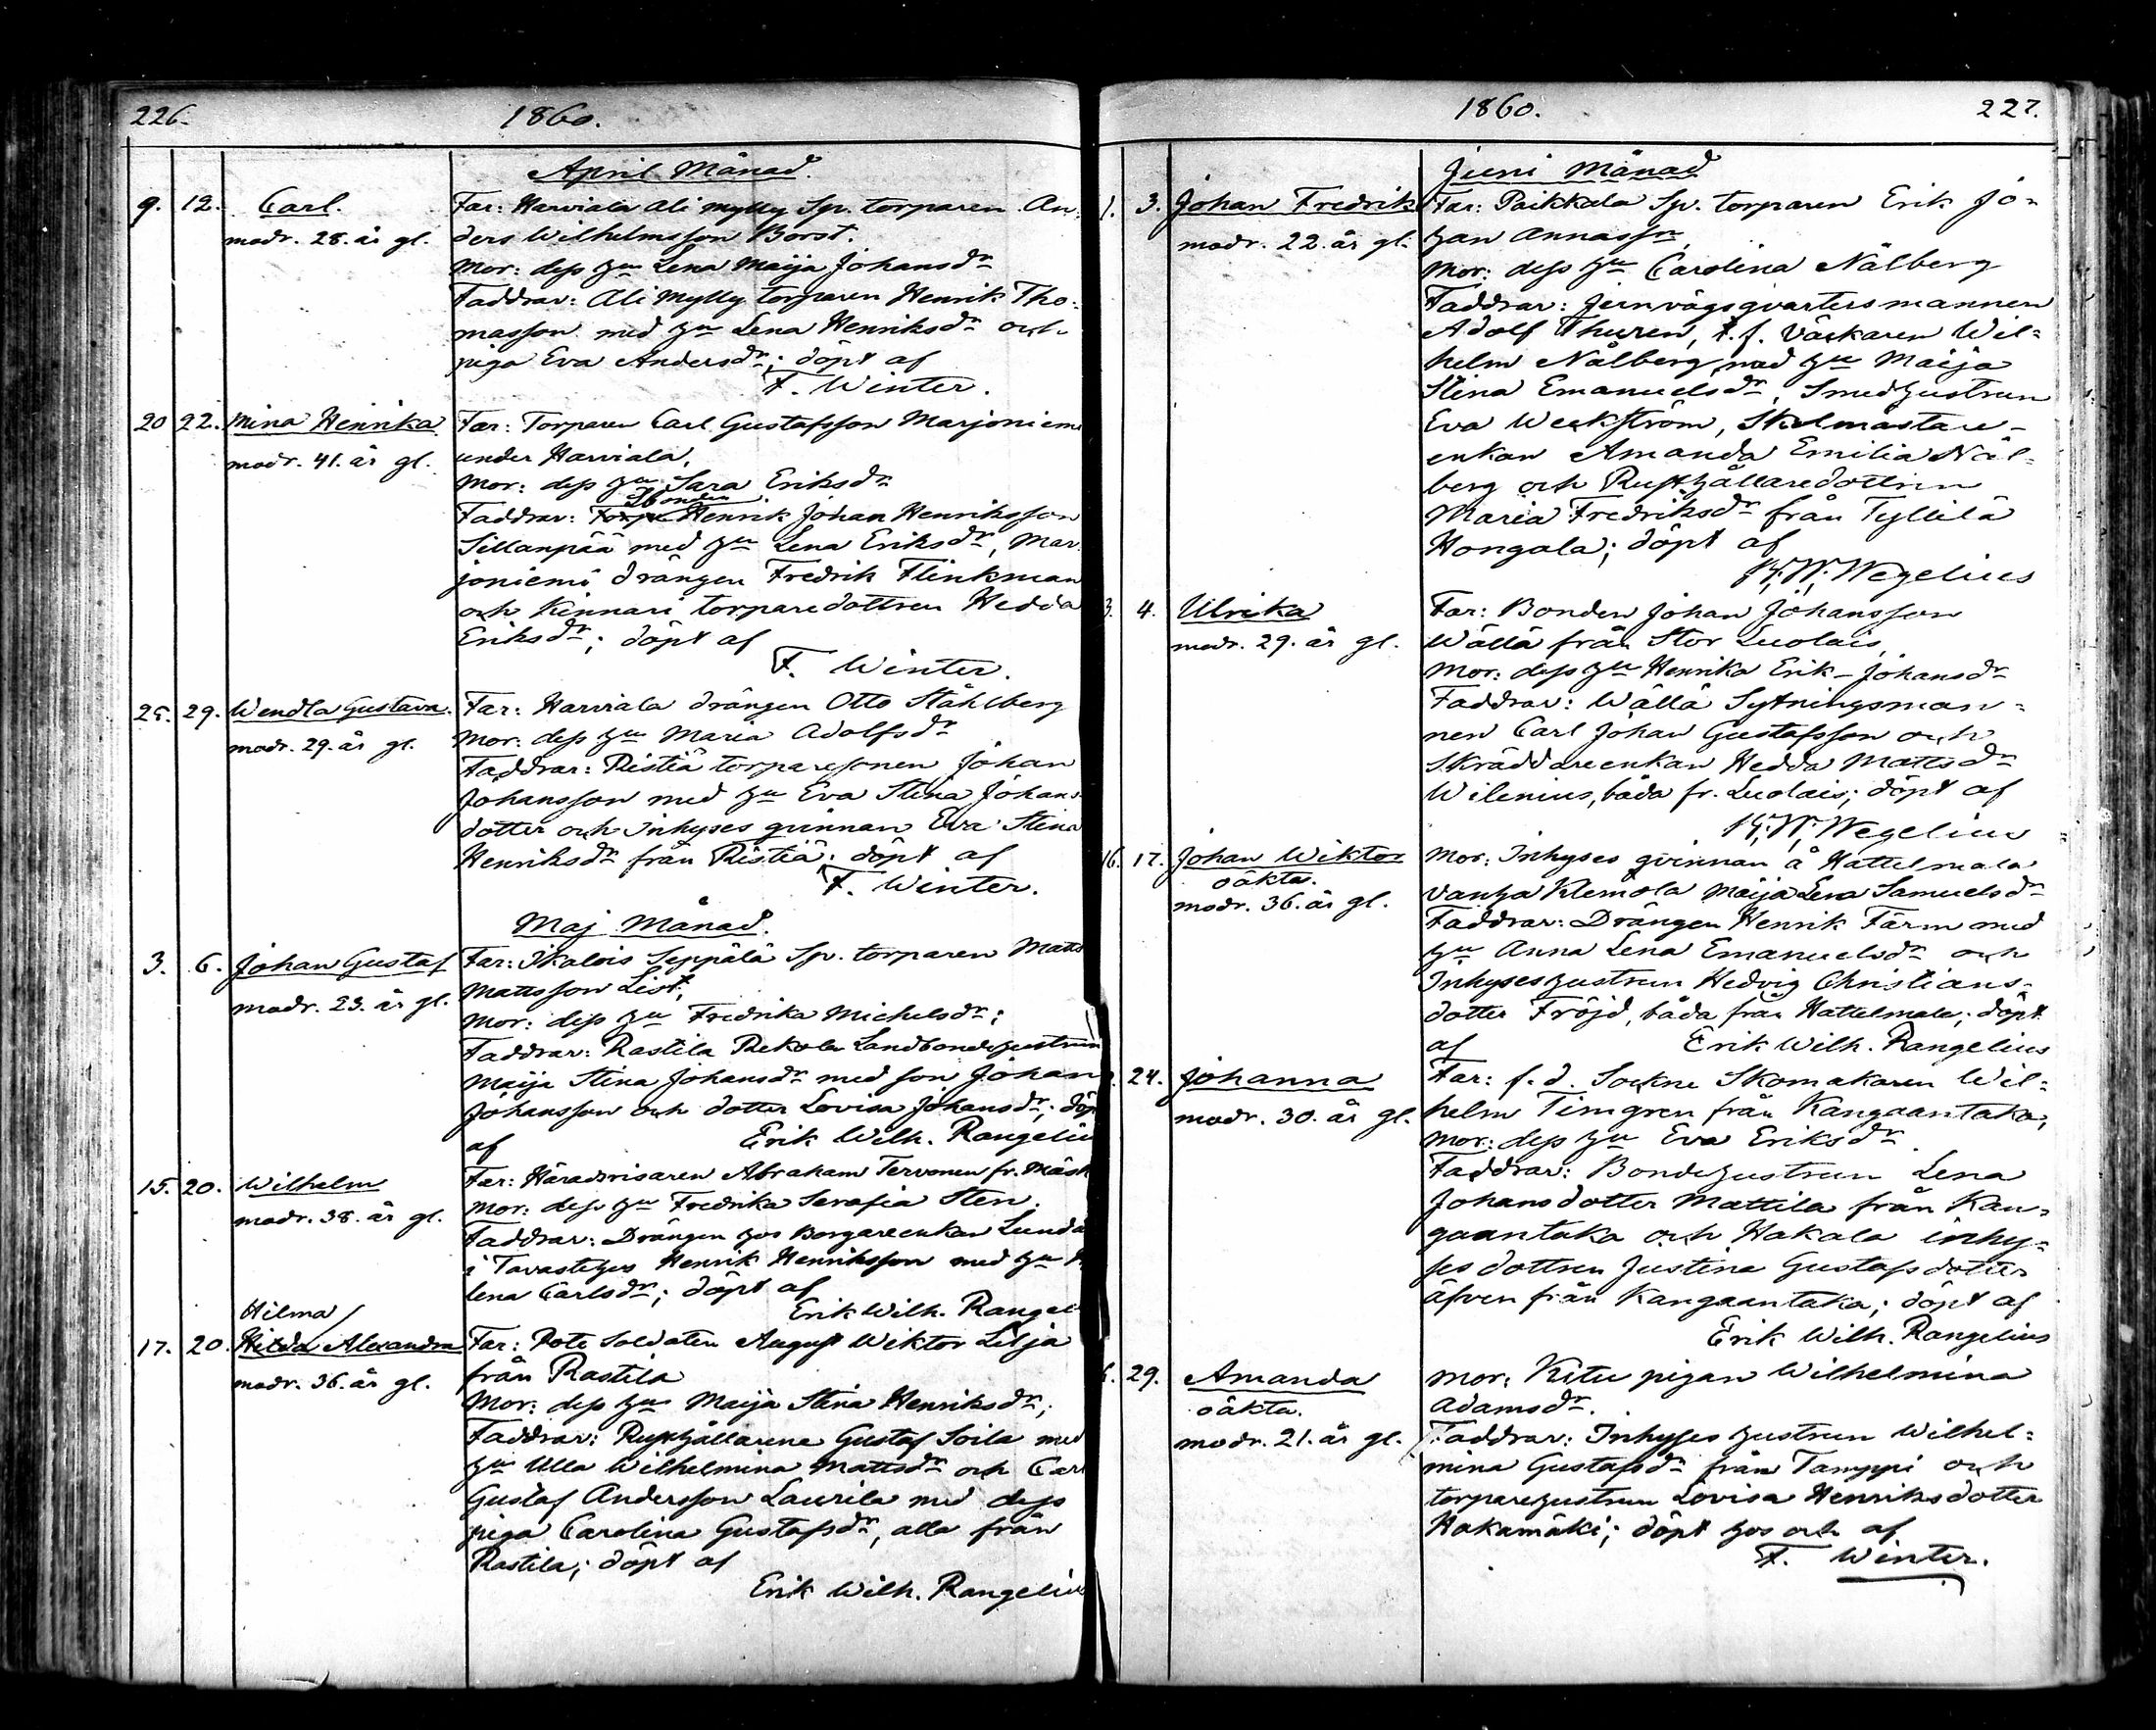 226.
1860.
April Månad.
9. 12. Carl. Far: Harviala Ali Mylly Sp. torparen An-
modr. 28. år gl. ders Wilhelmsson Borst.
Mor: dess hu Lena Maija Johansdr
Faddrar: Ali Mylly torparen Henrik Tho-
masson med hu Lena Henriksdr och
piga Eva Andersdr; döpt af
F. Winter.
20 22. Mina Henrika Far: Torparen Carl Gustafsson Marjoniemi
modr. 41. år gl. under Harviala.
Mor: dess hu Sara Eriksdr
Bonden
Faddrar: Henrik Johan Henriksson
Sillanpää med hu Lena Eriksdr, Mar-
joniemi drängen Fredrik Flinkman
och Kinnari torparedottren Hedda
Eriksdr; döpt af
F. Winter.
25. 29. Wendla Gustava. Far: Harviala drängen Otto Ståhlberg
modr. 29. år gl. Mor: dess hu Maria Adolfsdr
Faddrar: Ristiä torparesonen Johan
Johansson med hu Eva Stina Johans-
dotter och Inhyses qvinnan Eva Stina
Henriksdr från Ristiä; döpt af
F. Winter.
Maj Månad.
3. 6. Johan Gustaf Far: Ikalois Seppälä Sp. torparen Matts
modr. 23. år gl. Mattsson List,
Mor: dess hu Fredrika Michelsdr;
Faddrar: Rastila Rekola Landbondehustrun
Maija Stina Johansdr med son Johan
Johansson och dotter Lovisa Johansdr; döp
af Erik Wilh. Rangeliu
15. 20. Wilhelm Far: Häradsvisaren Abraham Tervonen fr. Mäsk
modr. 38. år gl. Mor: dess hu Fredrika Serafia Sten.
Faddrar: Drängen hos Borgareenkan Lunda
i Tavastehus Henrik Henriksson med hu
lena Carlsdr; döpt af
Erik Wilh. Rangel
Hilma
17. 20. Hilda Alexandra Far: Rote Soldaten August Wiktor Lilja
modr. 36. år gl. från Rastila
Mor: dess hu Maija Stina Henriksdr;
Faddrar: Rusthållarene Gustaf Soila med
hu Ulla Wilhelmina Mattsdr och Carl
Gustaf Andersson Laurila med dess
piga Carolina Gustafsdr, alla från
Rastila; döpt af
Erik Wilh. Rangeliu
1860.
227.
Juni Månad
1. 3. Johan Fredrik Far: Paikkala Sp. torparen Erik Jo-
modr. 22. år gl. han Annasson,
Mor: dess hu Carolina Nälberg
Faddrar: Jernvägsqvartersmannen
Adolf Thuren, t. f. Väckaren Wil-
helm Nålberg med hu Maija
Stina Emanuelsdr, Smedhustrun
Eva Weckström, Skolmästare-
enkan Amanda Emilia Näl-
berg och Rusthållaredottren
Maria Fredriksdr från Tyllilä
Hongala; döpt af
K. W. Wegelius
3. 4. Ulrika Far: Bonden Johan Johansson
modr. 29. år gl. Wällä från Stor Luolais,
Mor: dess hu Henrika Erik-Johansdr
Faddrar: Wällä Sytningsman-
nen Carl Johan Gustafsson och
Skräddareenkan Hedda Mattsdr
Wilenius, båda fr. Luolais; döpt af
K. W. Wegelius
16. 17. Johan Wiktor Mor: Inhyses qvinnan å Hattelmala
oäkta.
modr. 36. år gl. Vanha Klemola Maija Lena Samuelsdr
Faddrar: Drängen Henrik Färm med
hu Anna Lena Emanuelsdr och
Inhyseshustrun Hedvig Christians-
dotter Fröjd, båda från Hattelmala; döpt
af Erik Wilh. Rangelius
24. Johanna Far: f. d. Sockne Skomakaren Wil-
modr. 30. år gl. helm Timgren från Kangaantaka,
Mor: dess hu Eva Eriksdr
Faddrar: Bondehustrun Lena
Johansdotter Mattila från Kan-
gaantaka och Hakala inhy-
ses dottren Justina Gustafsdotter
äfven från Kangaantaka; döpt af
Erik Wilh. Rangelius
6. 29. Amanda Mor: Kitu pigan Wilhelmina
oäkta. Adamsdr.
modr. 21. år gl. Faddrar: Inhyses hustrun Wilhel-
mina Gustafsdr från Tamppi och
torparehustrun Lovisa Henriksdotter
Hakamäki; döpt hos och af
F. Winter.